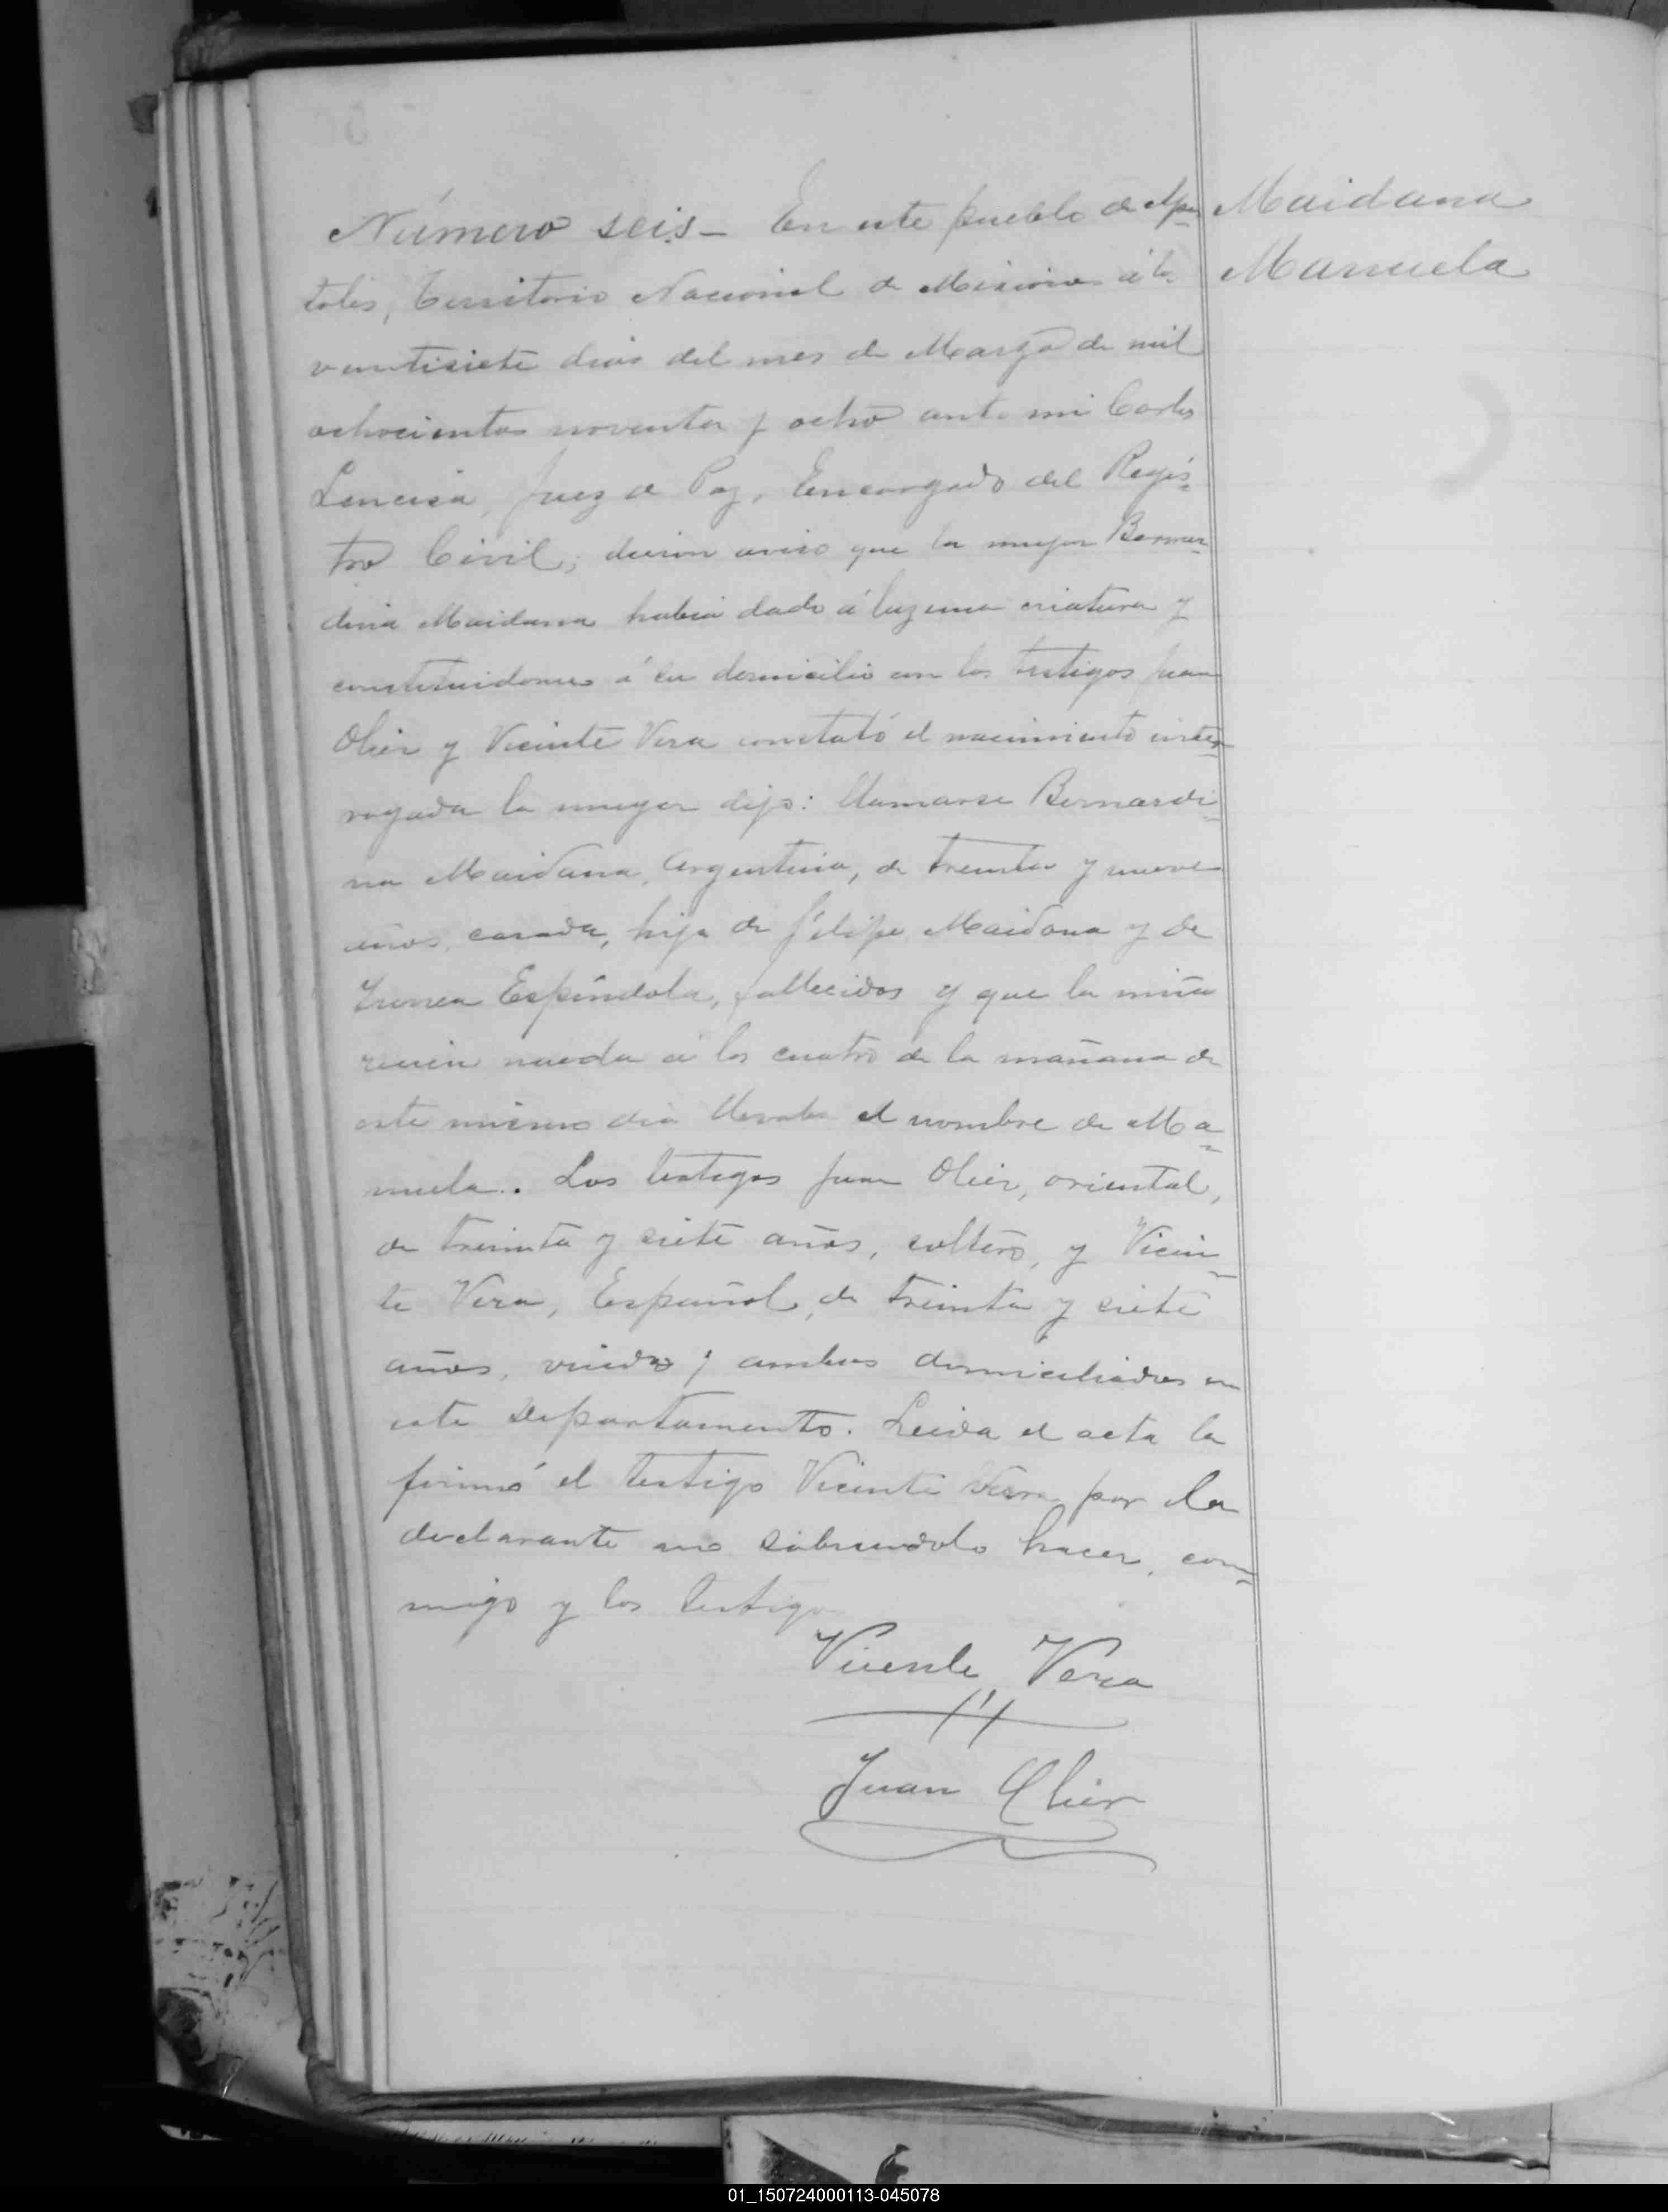 Número seis — En este pueblo de Após-
toles, Territorio Nacional de Misiones á los
veintisiete dias del mes de Marzo de mil
ochocientos noventa y ocho ante mi Carlos
Juez de Paz, Encargado del Regis-
tro Civil, dieron aviso que la mujer Bernar-
dina Maidana habia dado á luz una criatura y
constituidome á su domicilio con los testigos Juan
Olier y Vicente Vera constató el nacimiento inter-
rogada la mujer dijo: llamarse Bernardi-
na Maidana, Argentina, de treinta y nueve
años, casada, hija de Felipe Maidana y de
Espíndola, fallecidos y que la niña
recien nacida á las cuatro de la mañana de
este mismo dia llevaba el nombre de Ma-
nuela. Los testigos Juan Olier, oriental,
de treinta y siete años, soltero, y Vicen-
te Vera, Español, de treinta y siete
años, viudo; ambos domiciliados en
este Departamento. Leida el acta la
firmó el testigo Vicente Vera por la
declarante no sabiendolo hacer, con-
migo y los testigos
Vicente Vera
Juan Olier
Maidana
Manuela
01_150724000113-045078